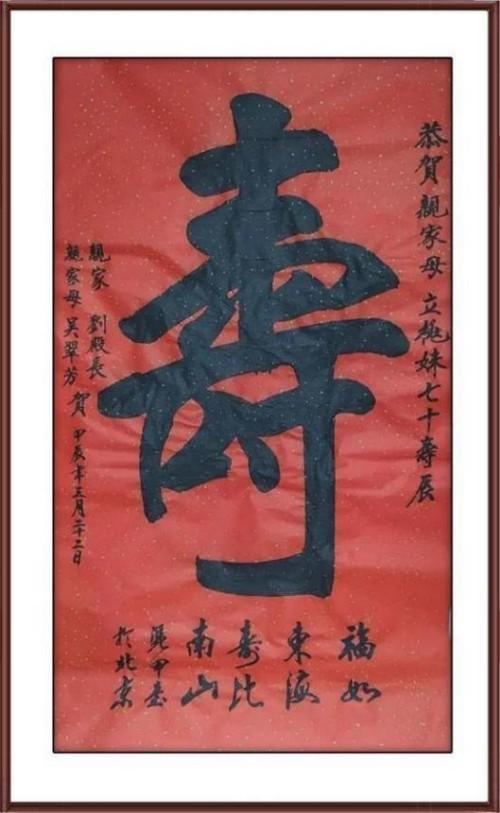 恭賀親家母 立艳妹七十壽辰
寿
親家 劉殿長
親家母 吳翠芳 賀 甲辰年三月二十二日
福如
東海
寿比
南山
甲書
於北京